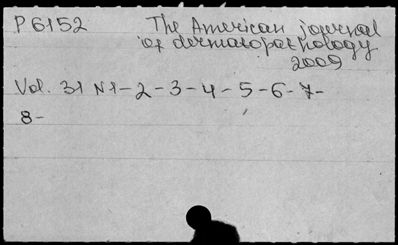 P 6152 The American journal
of dermatopathology
2009
Vol. 31 N 1 - 2 - 3 - 4 - 5 - 6 - 7 -
8 -